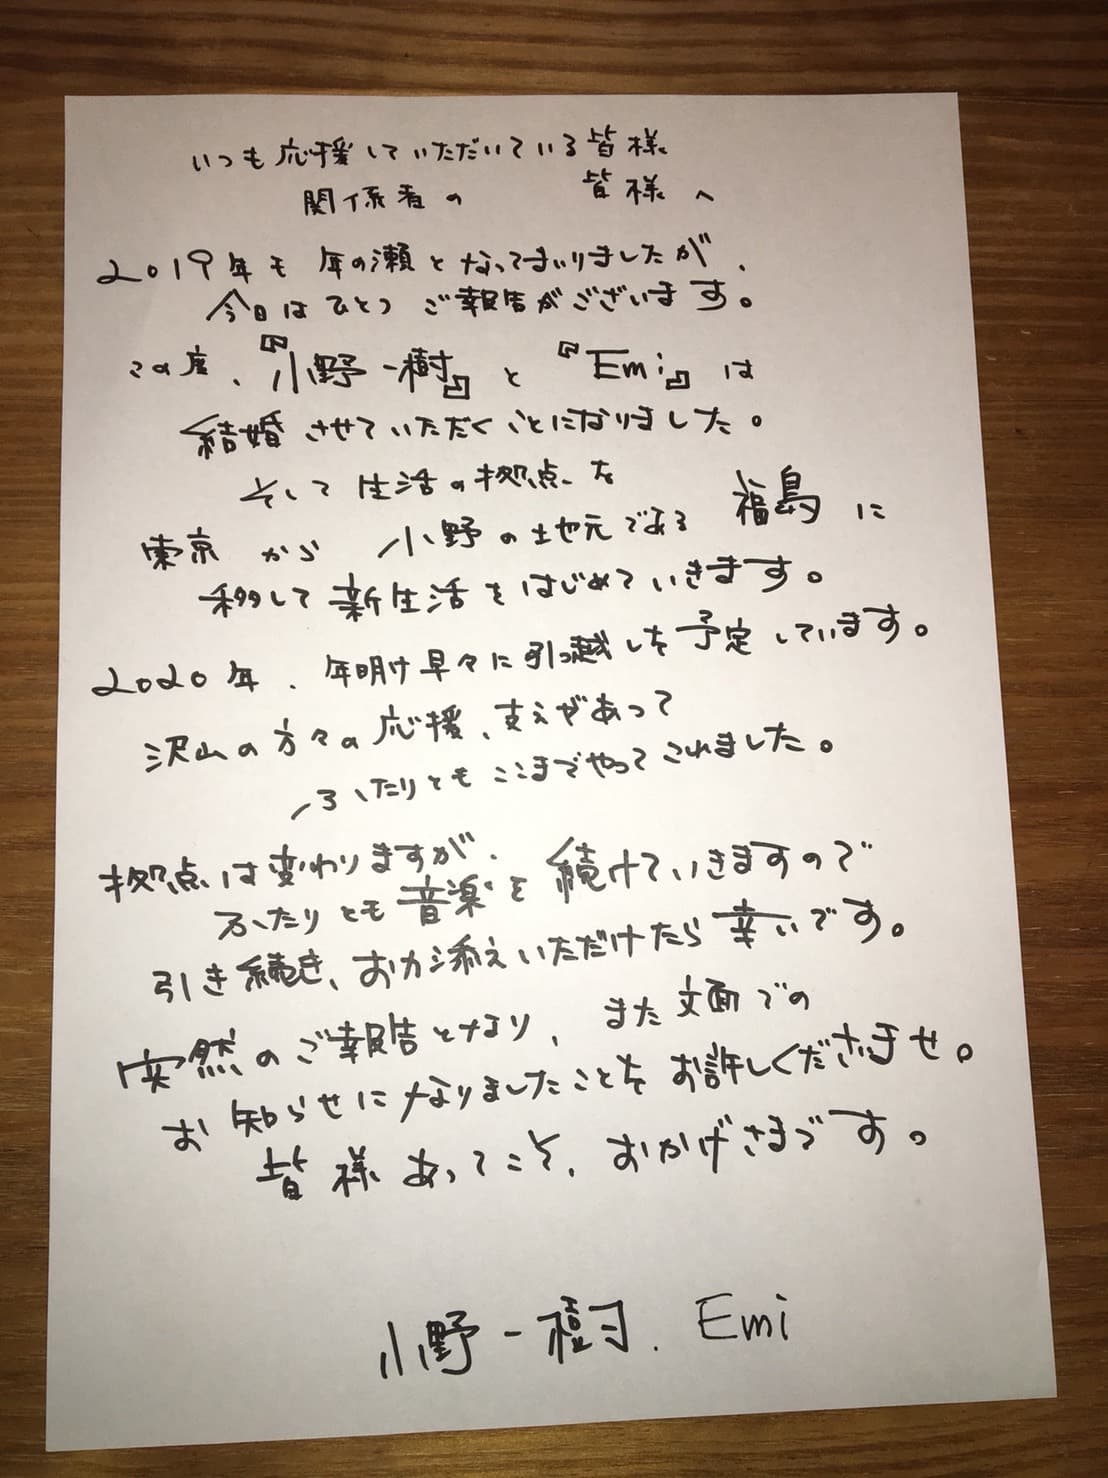 いつも応援していただいている皆様
関係者の 皆様へ
2019年も年の瀬となってまいりましたが、
今日はひとつご報告がございます。
この度、『小野一樹』と『Emi』は
結婚させていただくことになりました。
そして生活の拠点を
東京から小野の地元である福島に
移して新生活をはじめていきます。
2020年、年明け早々に引っ越しを予定しています。
沢山の方々の応援、支えがあって
ふたりともここまでやってこれました。
拠点は変わりますが、
ふたりとも音楽を続けていきますので
引き続き、お力添えいただけたら幸いです。
突然のご報告となり、また文面での
お知らせになりましたことをお許しくださいませ。
皆様あってこそ、おかげさまです。
小野一樹、Emi